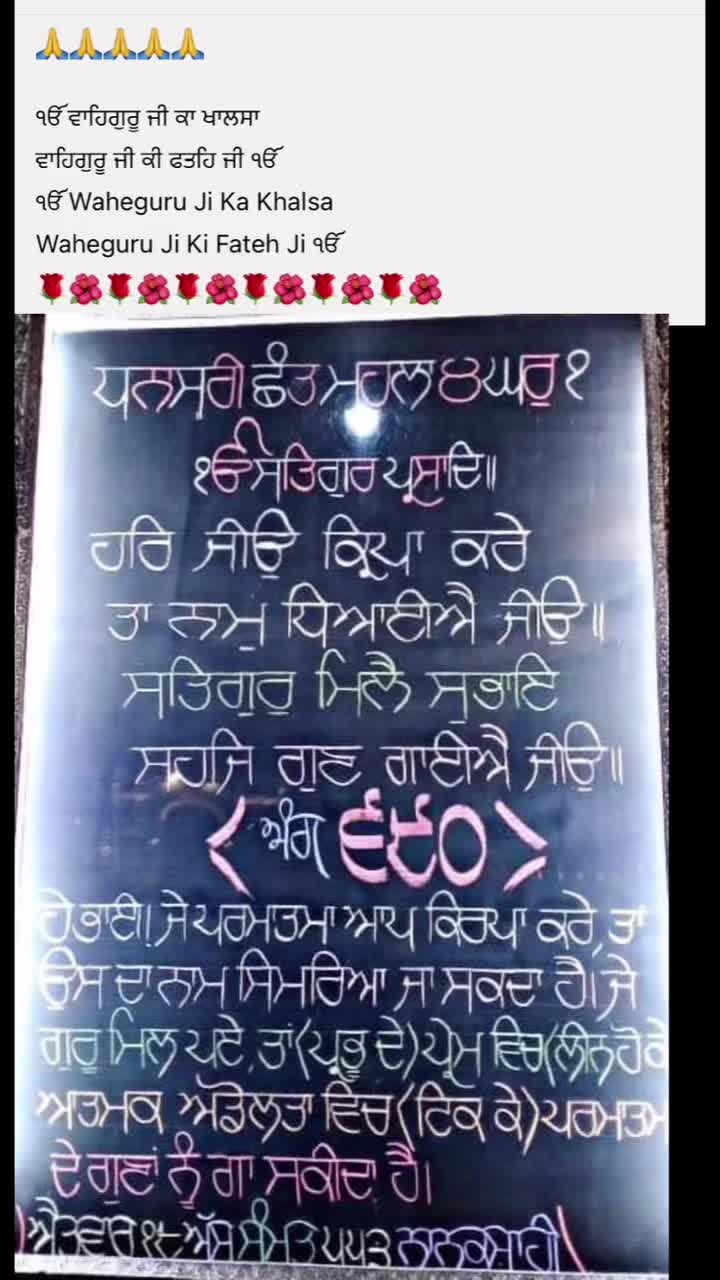 🙏🙏🙏🙏🙏
ੴ ਵਾਹਿਗੁਰੂ ਜੀ ਕਾ ਖਾਲਸਾ
ਵਾਹਿਗੁਰੂ ਜੀ ਕੀ ਫਤਹਿ ਜੀ ੴ
ੴ Waheguru Ji Ka Khalsa
Waheguru Ji Ki Fateh Ji ੴ
🌹🌺🌹🌺🌹🌺🌹🌺🌹🌺🌹🌺
ਧਨਾਸਰੀ ਛੰਤ ਮਹਲਾ ੪ ਘਰੁ ੧
ੴ ਸਤਿਗੁਰ ਪ੍ਰਸਾਦਿ॥
ਹਰਿ ਜੀਉ ਕ੍ਰਿਪਾ ਕਰੇ
ਤਾ ਨਾਮੁ ਧਿਆਈਐ ਜੀਉ॥
ਸਤਿਗੁਰੁ ਮਿਲੈ ਸੁਭਾਇ
ਸਹਜਿ ਗੁਣ ਗਾਈਐ ਜੀਉ॥
< ਅੰਗ ੬੯੦ >
ਹੇ ਭਾਈ! ਜੇ ਪਰਮਾਤਮਾ ਆਪ ਕਿਰਪਾ ਕਰੇ, ਤਾਂ
ਉਸ ਦਾ ਨਾਮ ਸਿਮਰਿਆ ਜਾ ਸਕਦਾ ਹੈ। ਜੇ
ਗੁਰੂ ਮਿਲ ਪਏ, ਤਾਂ (ਪ੍ਰਭੂ ਦੇ) ਪ੍ਰੇਮ ਵਿਚ (ਲੀਨ ਹੋ ਕੇ
ਆਤਮਕ ਅਡੋਲਤਾ ਵਿਚ (ਟਿਕ ਕੇ) ਪਰਮਾਤਮਾ
ਦੇ ਗੁਣਾਂ ਨੂੰ ਗਾ ਸਕੀਦਾ ਹੈ।
) ਐਤਵਾਰ ੧੮ ਅੱਸੂ ਸੰਮਤ ੫੫੩ ਨਾਨਕਸ਼ਾਹੀ \